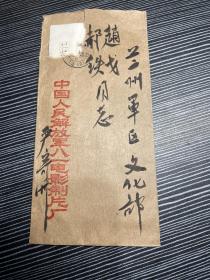 兰州军区文化部
赵戈
郝铁同志
中国人民解放军八一电影制片厂